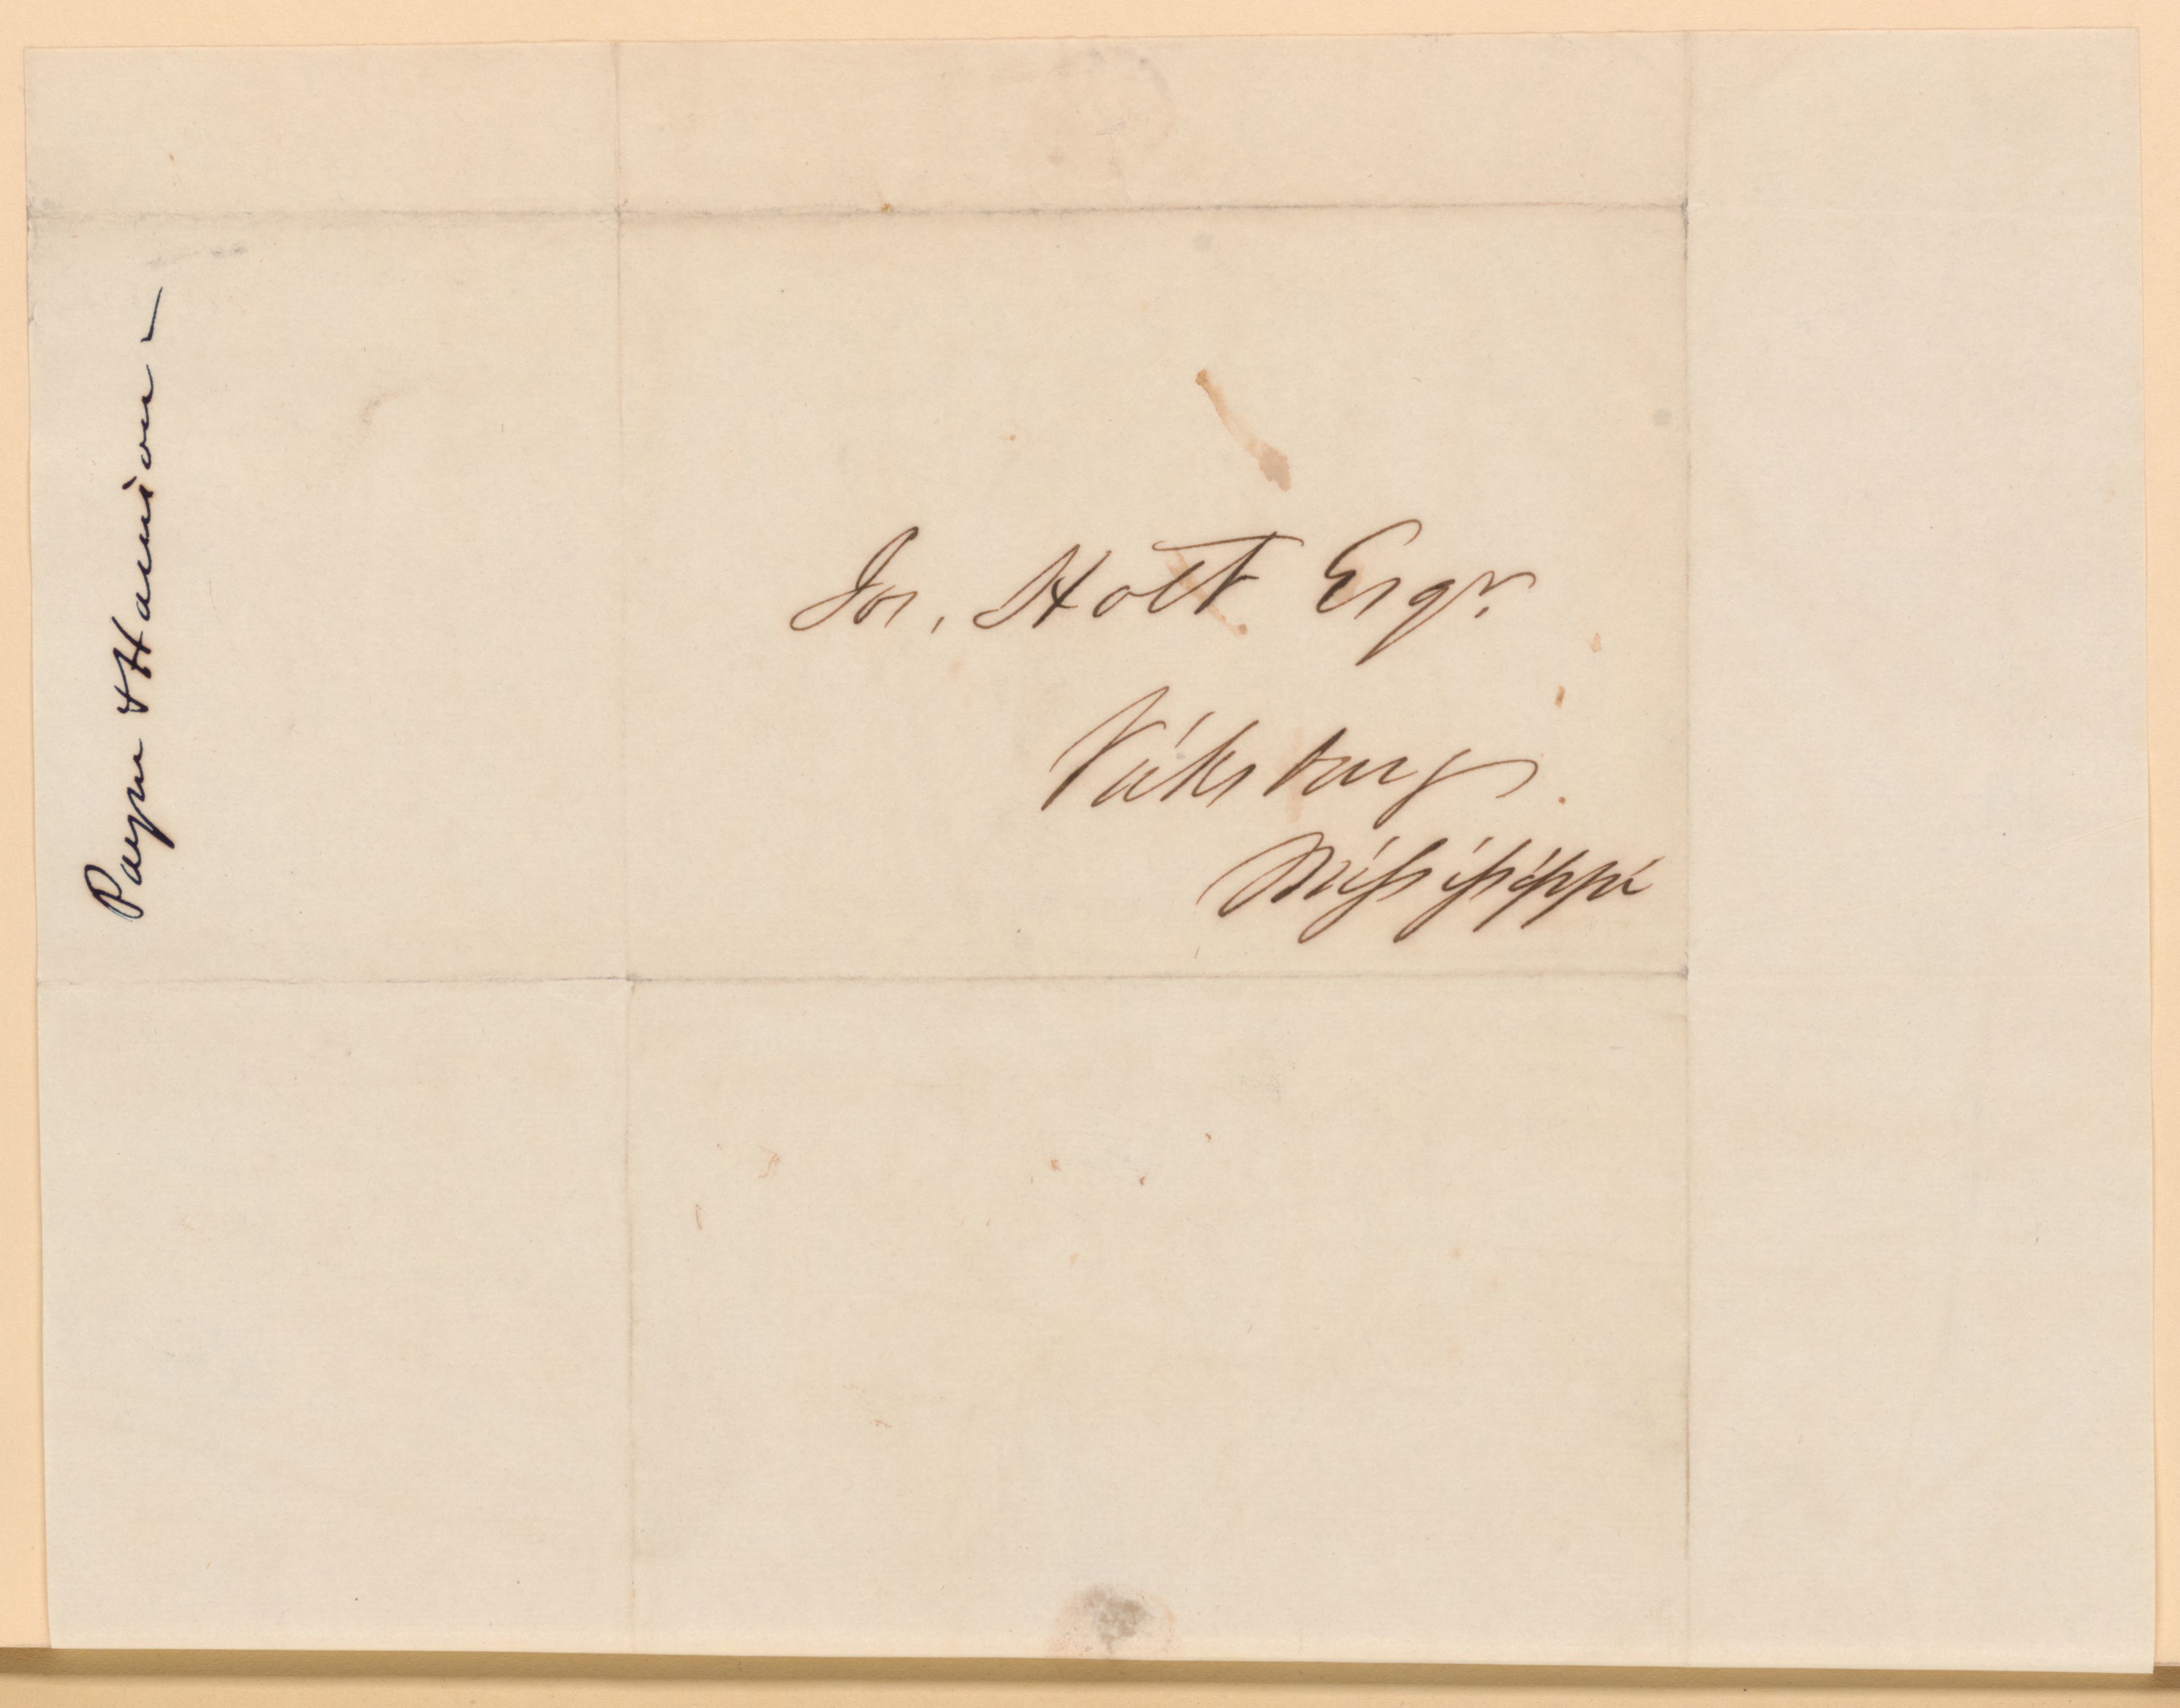 Payne & Harrison –
Jos. Holt Esqr.
Vicksburg.
Mississippi